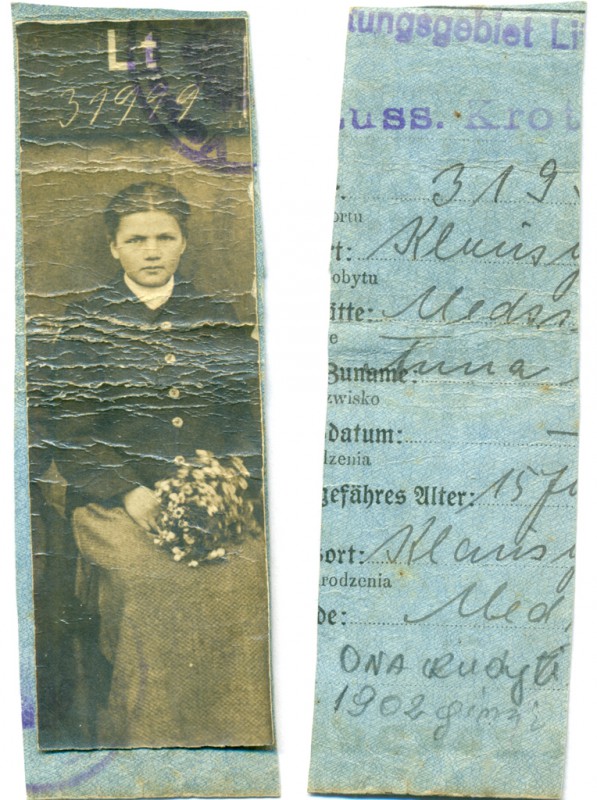 Lt
31999
tungsgebiet Lit
uss. Krot
319
ortu
rt: Klausg
obytu
itte: Medss
e
Zuname: Anna
zwisko
sdatum: —
dzenia
gefähres Alter: 15 Ja
ort: Klausg
rodzenia
de: Med
ONA
1902